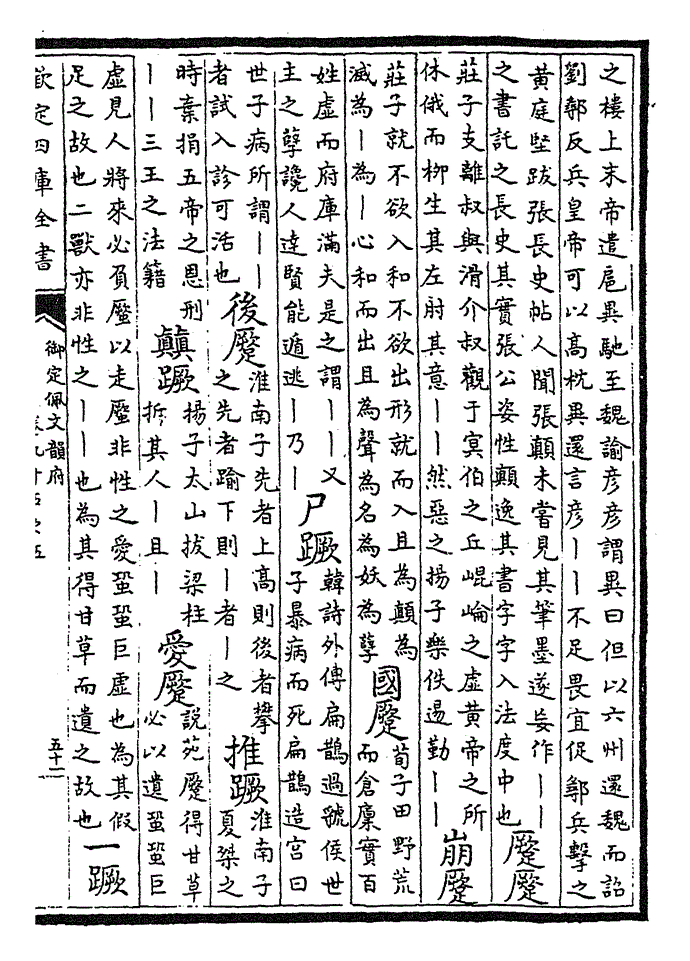 之樓上末帝遣扈異馳至魏諭彥彥謂異曰但以六州還魏而詔
劉鄩反兵皇帝可以高枕異還言彥丨丨不足畏宜促鄩兵擊之
黃庭堅跋張長史帖人聞張顛未嘗見其筆墨遂妄作丨丨
之書託之長史其實張公姿性顛逸其書字字入法度中也
蹷蹷
莊子支離叔與滑介叔觀于冥伯之丘崐崘之虛黃帝之所
休俄而柳生其左肘其意丨丨然惡之揚子樂佚遏勤丨丨
崩蹷
莊子就不欲入和不欲出形就而入且為顛為
滅為丨為丨心和而出且為聲為名為妖為孽
國蹷
荀子田野荒
而倉廩實百
姓虛而府庫滿夫是之謂丨丨又
主之孽讒人達賢能遁逃丨乃丨
尸蹶
韓詩外傳扁鵲過虢侯世
子暴病而死扁鵲造宮曰
世子病所謂丨丨
者試入診可活也
後蹷
淮南子先者上高則後者攀
之先者踰下則丨者丨之
推蹶
淮南子
夏桀之
時棄捐五帝之恩刑
丨丨三王之法籍
顛蹶
揚子太山拔梁柱
折其人丨且丨
愛蹷
說苑蹷得甘草
必以遺蛩蛩巨
虛見人將來必負蹷以走蹷非性之愛蛩蛩巨虛也為其假
足之故也二獸亦非性之丨丨也為其得甘草而遺之故也
一蹶
欽定四庫全書
御定佩文韻府
五十二